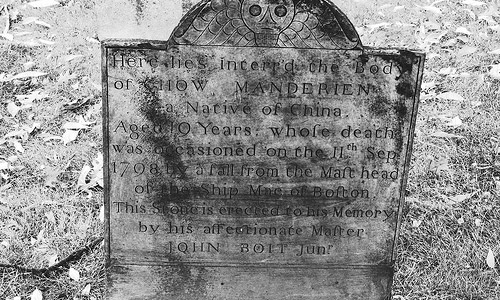 Here lies Interr'd the Body
of CHOW MANDERIEN
a Native of China
Aged 19 Years; whoſe death
was occaſioned on the 11th Sep.
1798 by a fall from the Maſt head
of the Ship Mac of Boſton
This Stone is erected to his Memory
by his affectionate Maſter
JOHN BOIT Junr